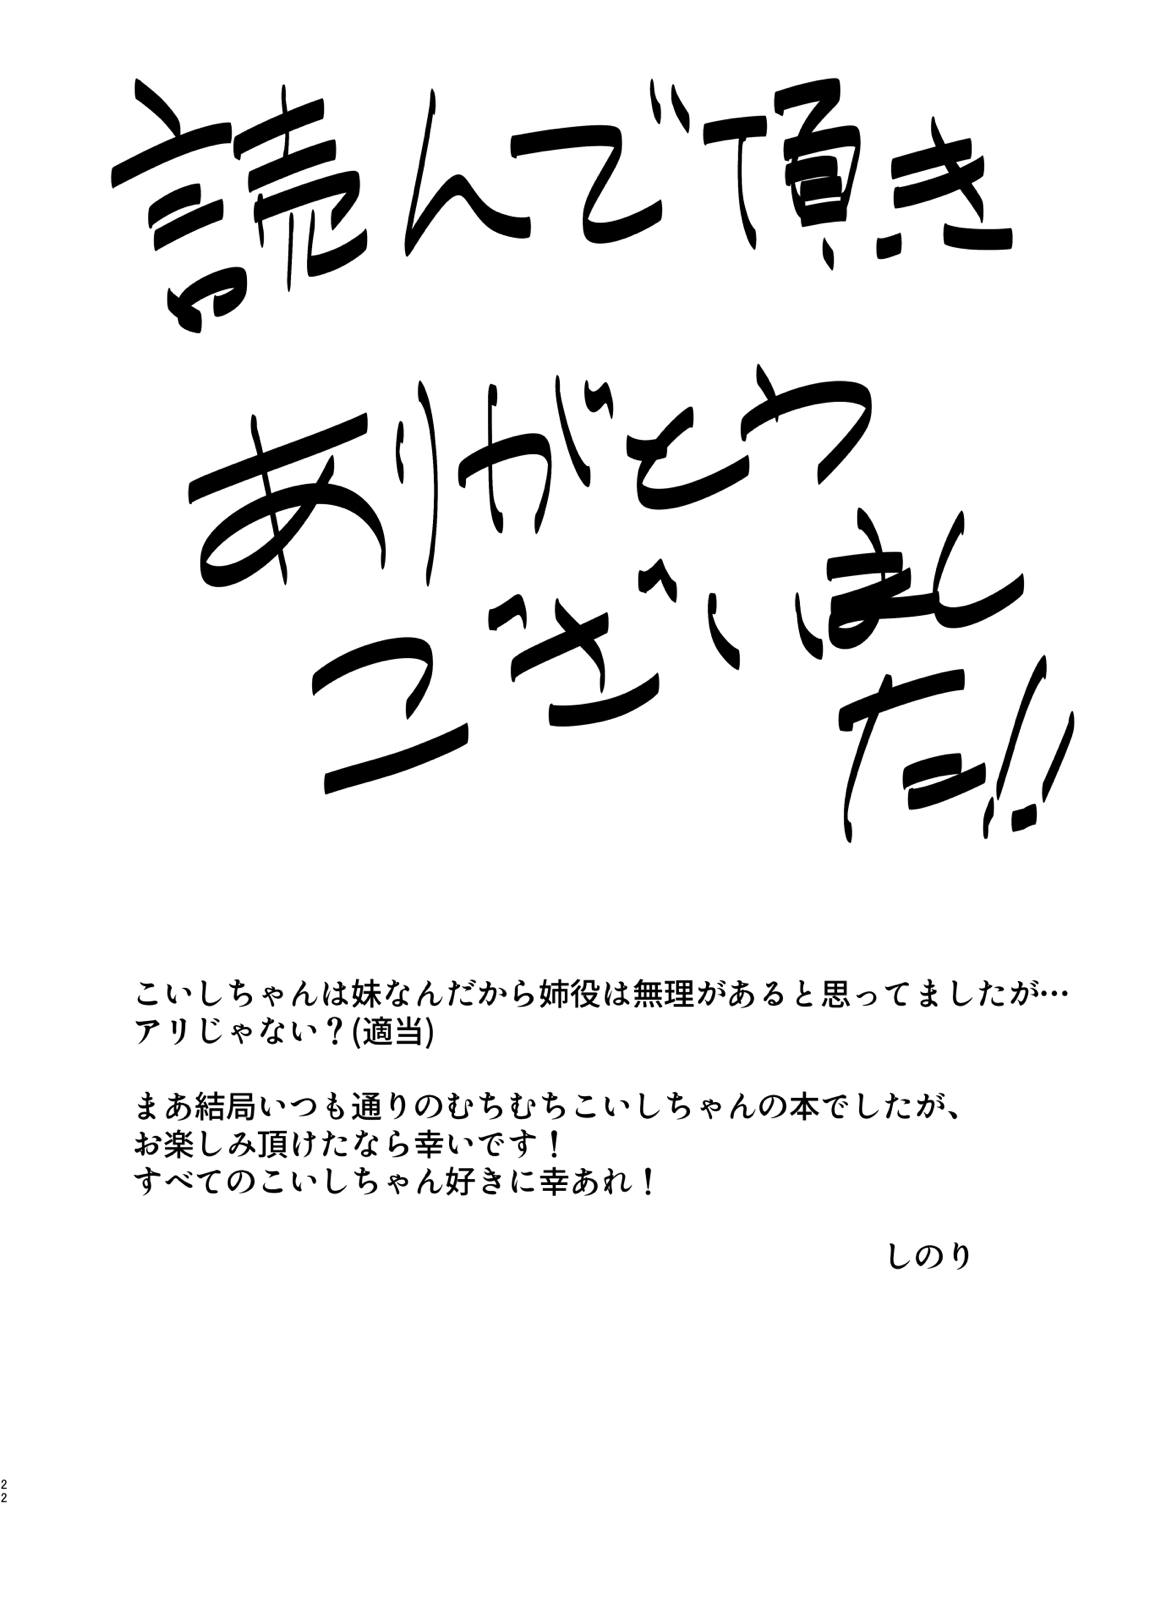 読んで頂き
ありがとう
ございまし
た!!
こいしちゃんは妹なんだから姉役は無理があると思ってましたが…
アリじゃない？(適当)
まあ結局いつも通りのむちむちこいしちゃんの本でしたが、
お楽しみ頂けたなら幸いです！
すべてのこいしちゃん好きに幸あれ！
しのり
22